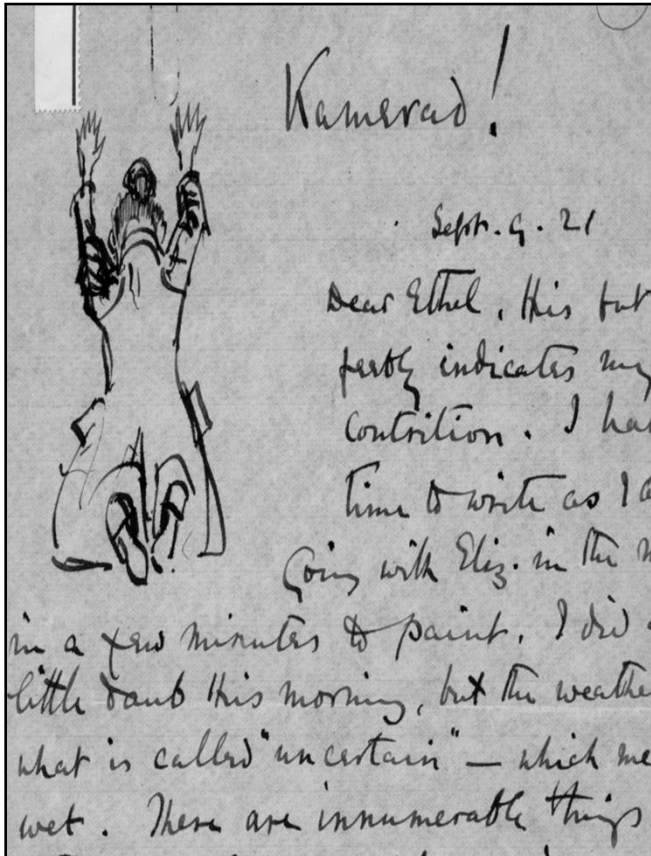 Kamerad!
Sept. 9. 21
Dear Ethel, this but
feebly indicates my
contrition. I ha
time to write as I a
going with Eliz. in the m
in a few minutes to paint. I did a
little daub this morning, but the weathe
what is called "uncertain" — which me
wet. There are innumerable things